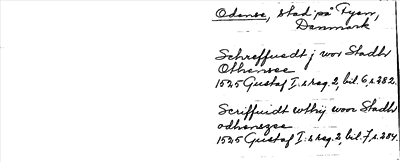 Odense, stad på Fyen,
Danmark
Schreffuedt j wor Stadtz
Othensee
1525 Gustaf I:s reg. 2, bil. 6, s. 282.
Scriffuidt wthj woor Stadtz
odhenszee
1525 Gustaf I:s reg. 2, bil. 7, s. 284.